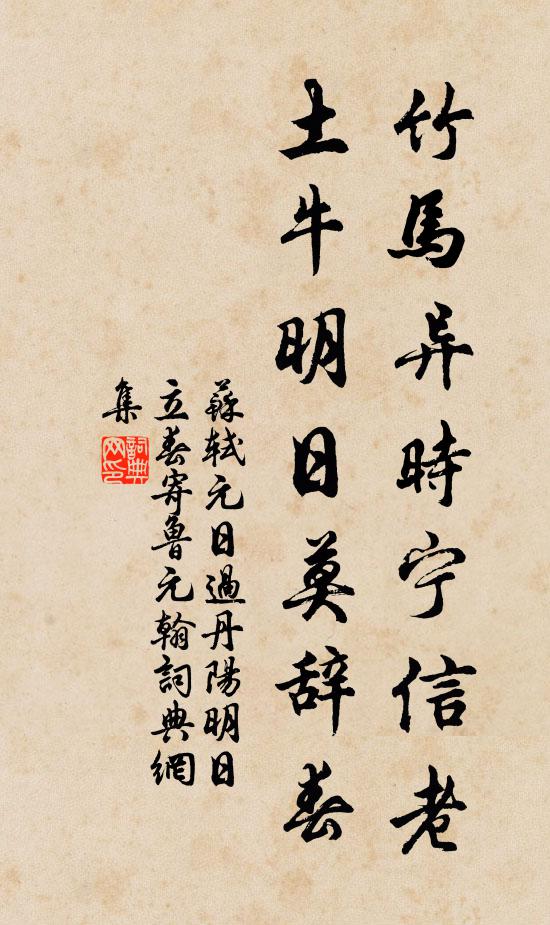 竹馬异時宁信老
土牛明日莫辞春
蘇軾元日過丹陽明日
立春寄魯元翰詞典網
集
詞典网印